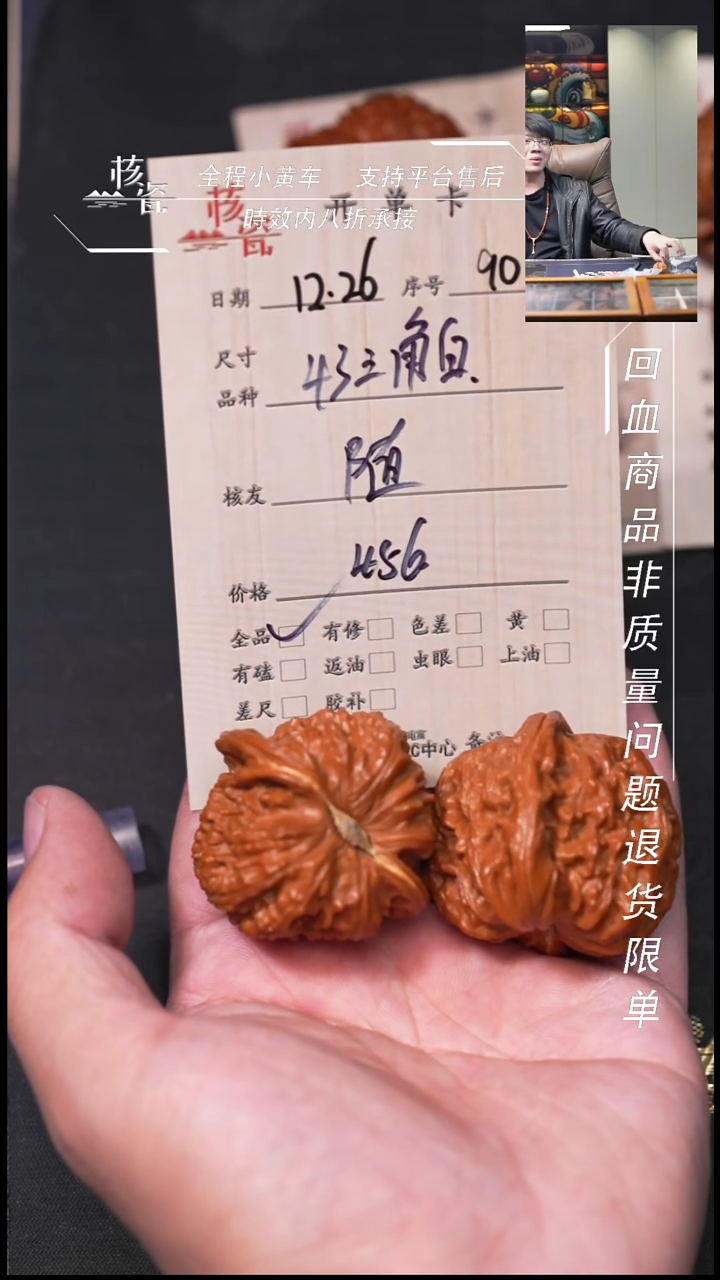 核瓷
全程小黄车 支持平台售后
時效内八折承接
核瓷 开单卡
日期 12.26 序号 90
尺寸
品种 43三角白
核友 随
价格 456
全品 有修 色差 黄
有磕 返油 虫眼 上油
差尺 胶补
C中心
回血商品非质量问题退货限单